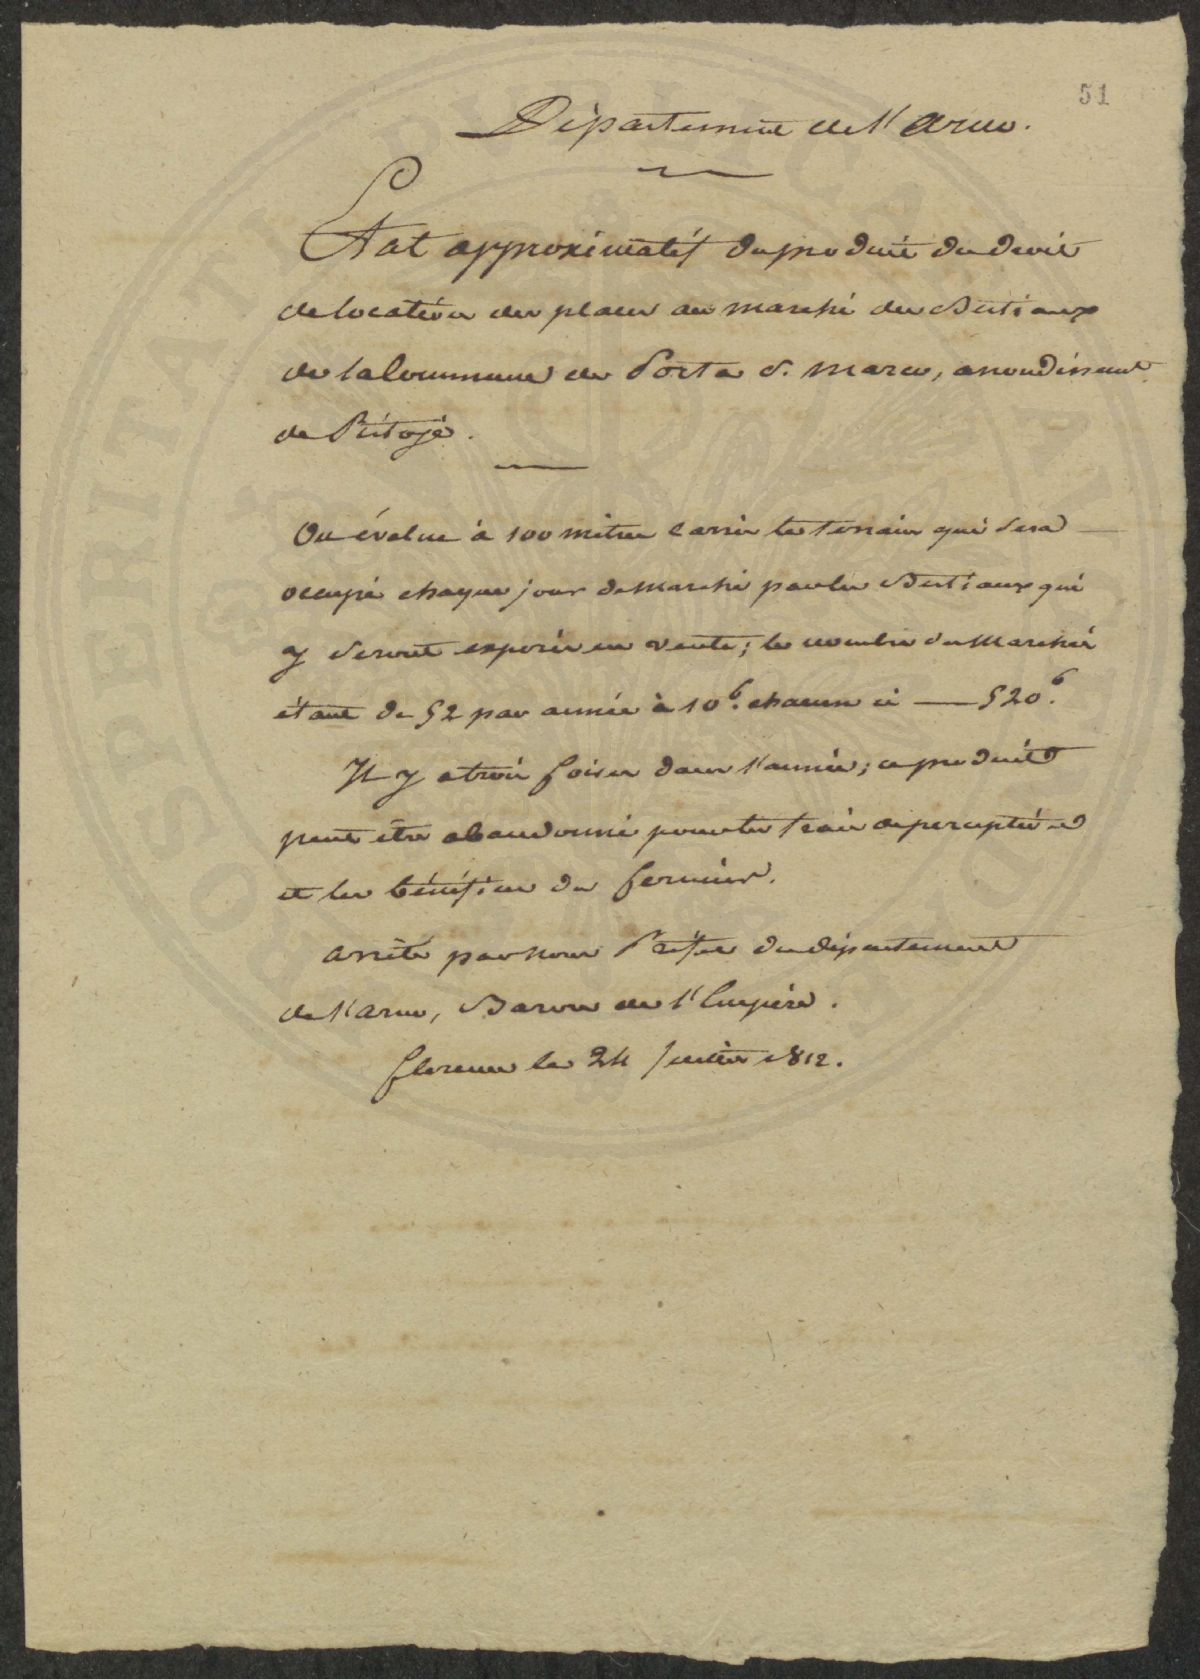 51
Département de l'Arno.
Etat approximatif du produit du droit
de location des places au marché des Bestiaux
de la Commune de Porta S. Marco, arrondissement
de Pistoje.
On évalue à 100 mètres carrés le terrain qui sera
occupé chaque jour de Marché par les Bestiaux qui
y seront exposés en vente; le nombre des Marchés
étant de 52 par année à 10f. chacun ci — 520f.
Il y a trois foires dans l'année; ce produit
peut être abandonné pour les frais de perception
et les bénéfices du fermier.
Arrêté par nous Préfet du département
de l'Arno, Baron de l'Empire.
florence le 24 1812.